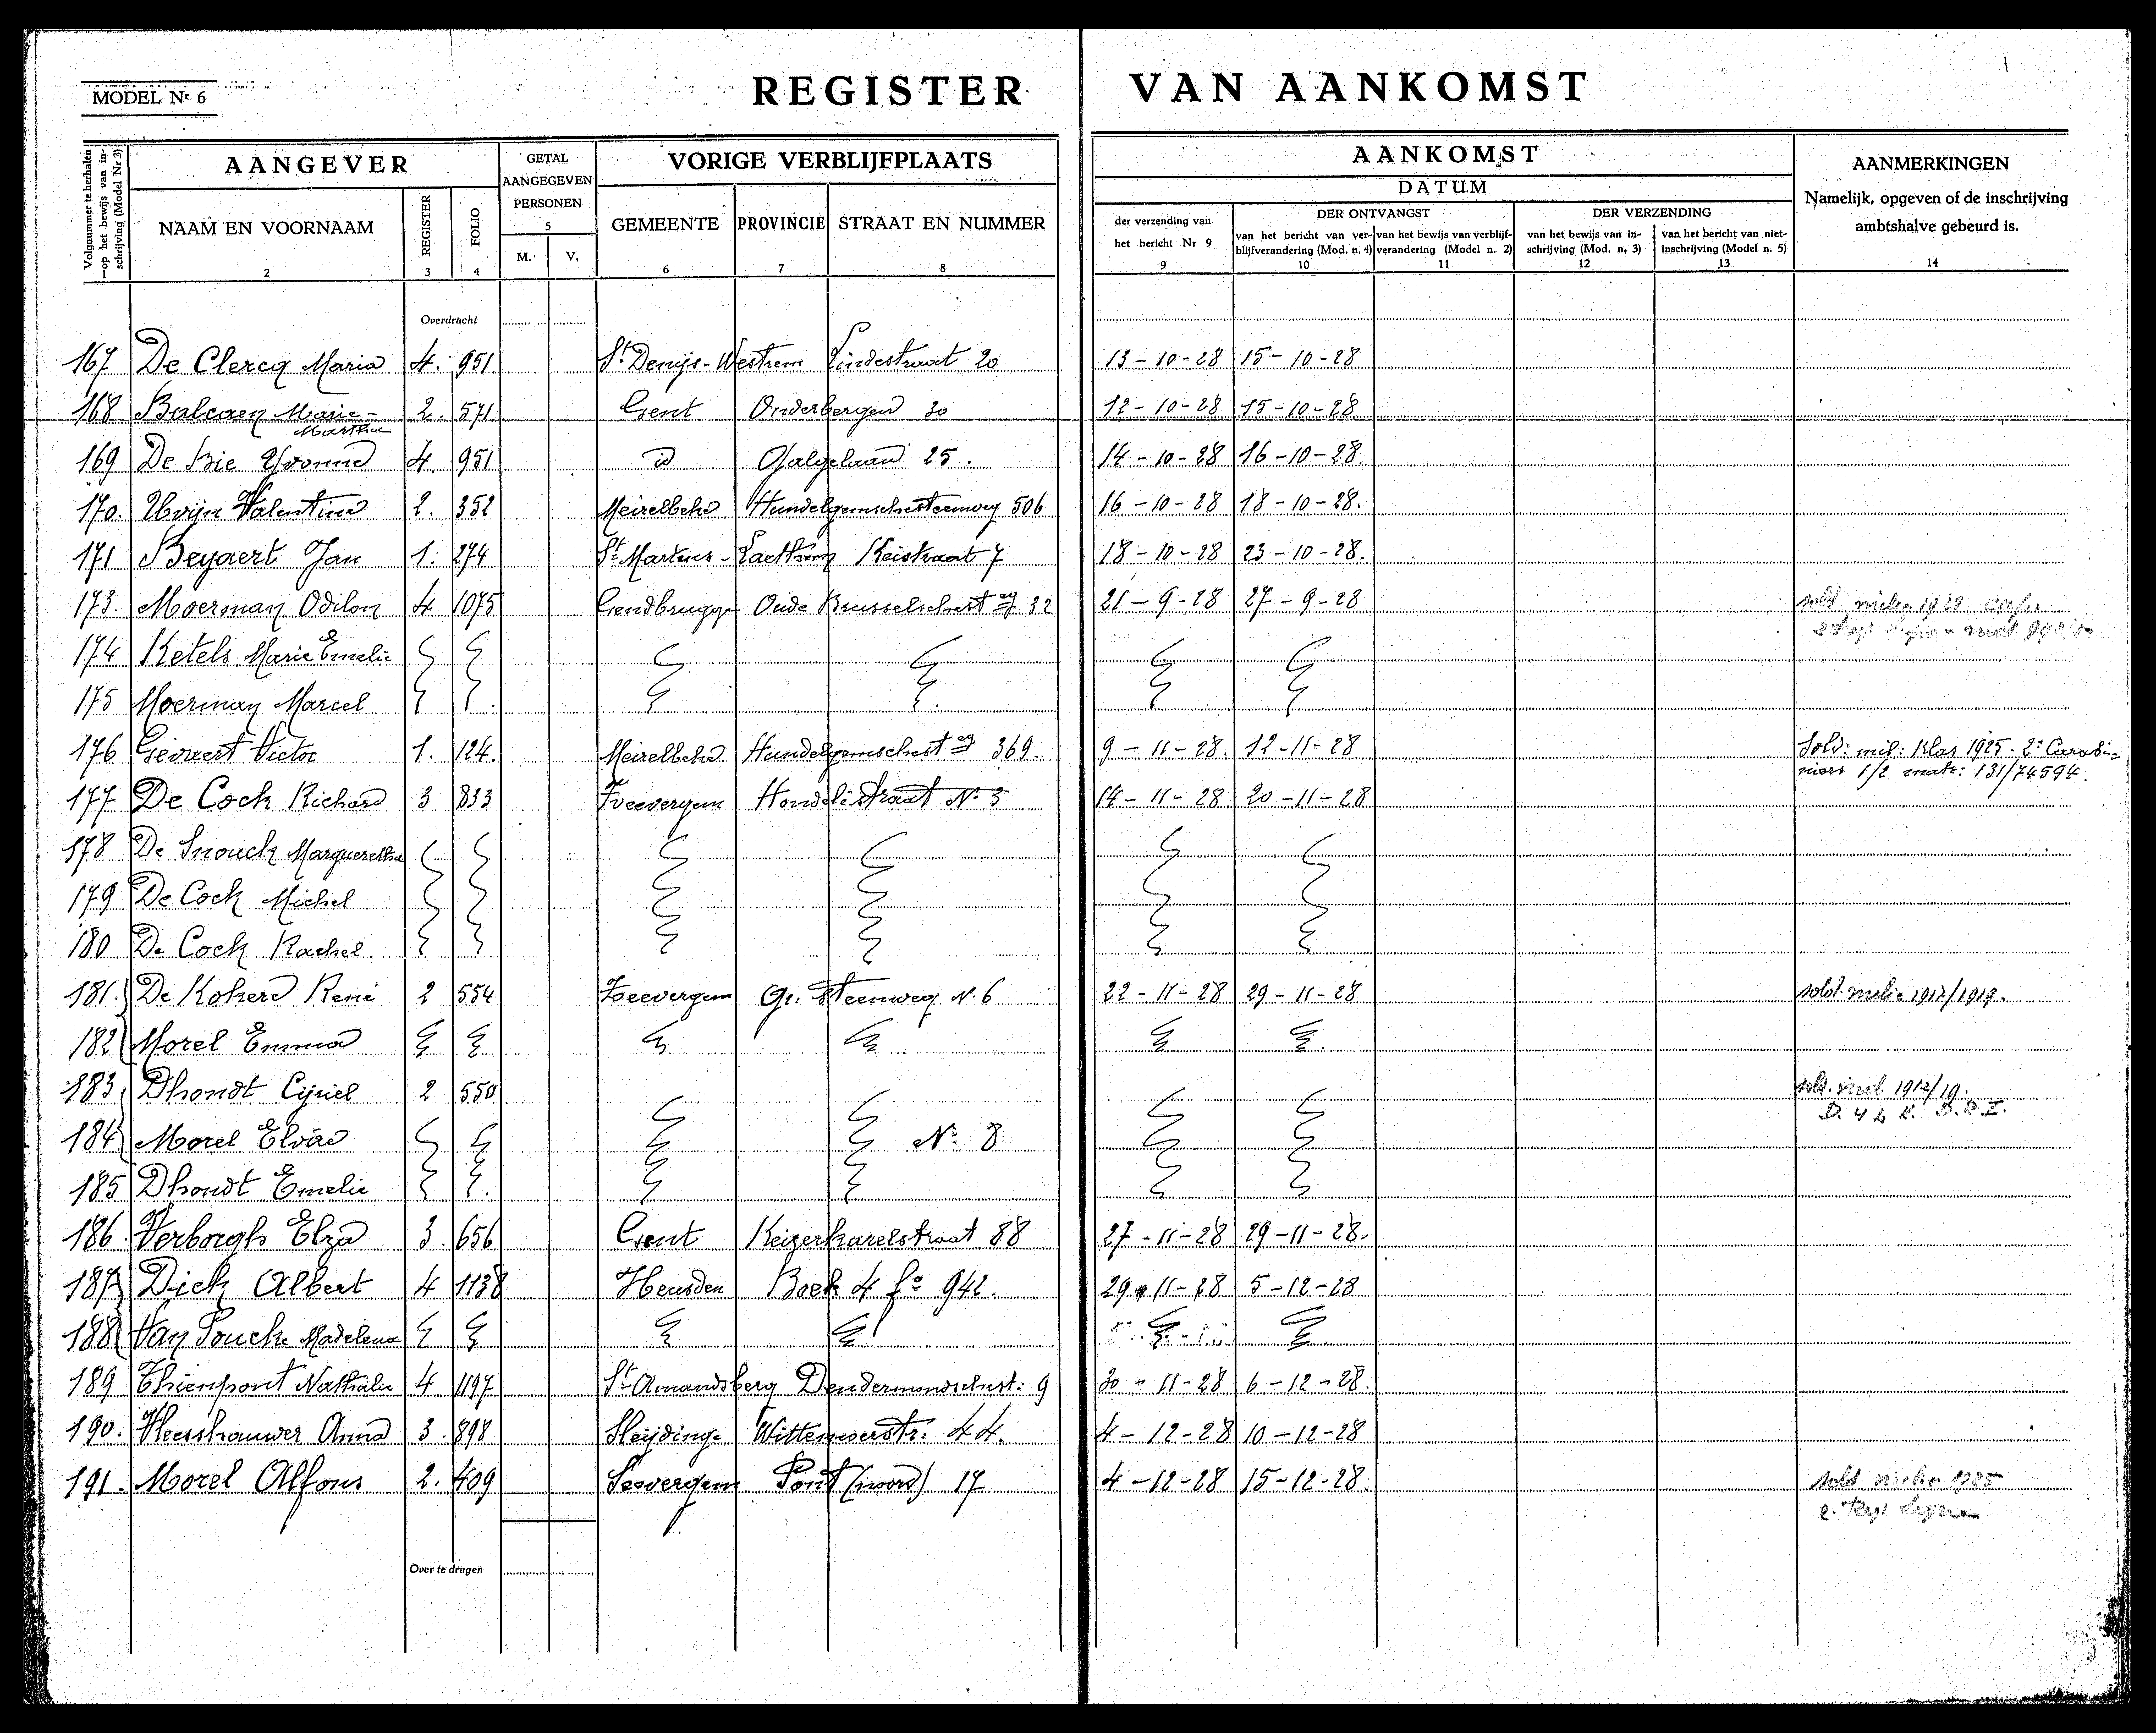 MODEL Nr 6
REGISTER VAN AANKOMST
Volgnummer te herhalen op het bewijs van inschrijving (Model Nr 3)
AANGEVER
NAAM EN VOORNAAM
2
REGISTER
3
FOLIO
4
GETAL
AANGEGEVEN
PERSONEN
5
M. V.
VORIGE VERBLIJFPLAATS
GEMEENTE
6
PROVINCIE
7
STRAAT EN NUMMER
8
AANKOMST
DATUM
der verzending van
het bericht Nr 9
9
DER ONTVANGST
van het bericht van ver-
blijfverandering (Mod. n. 4)
10
van het bewijs van verblijf-
verandering (Model n. 2)
11
DER VERZENDING
van het bewijs van in-
schrijving (Mod. n. 3)
12
van het bericht van niet-
inschrijving (Model n. 5)
13
AANMERKINGEN
Namelijk, opgeven of de inschrijving
ambtshalve gebeurd is.
14
Overdracht
167 De Clercq Maria 4. 951. St Denijs-Westrem Lindestraat 20 13-10-28 15-10-28
168 Balcaen Marie- 2. 571 Gent Onderbergen 30 12-10-28 15-10-28
Martha
169 De Bie Yvonne 4. 951 id 25. 14-10-28 16-10-28.
170. Uvijn Valentine 2. 352 Meirelbeke Hundelgemschesteenweg 506 16-10-28 18-10-28.
171 Beyaert Jan 1. 274 St Martens-Laethem Keistraat 7 18-10-28 23-10-28.
173. Moerman Odilon 4 1075 Gendbrugge Oude Brusselschest eg 32 21-9-28 27-9-28 sold 1928
174 Ketels Marie Emelie
175 Moerman Marcel
176 Geivaert Victor 1. 124. Meirelbeke Hundelgemschest eg 369. 9-11-28. 12-11-28 Sold: mil: Klas 1925- 2e Carabi-
niers 1/2 matr: 131/74594.
177 De Cock Richard 3 833 Zeevergem Hondelestraat No 3 14-11-28 20-11-28
178 De Snouck Margueretha
179 De Cock Michel
180 De Cock Rachel.
181. De Kokere René 2 554 Zeevergem Gr. Steenweg N. 6 22-11-28 29-11-28 sold. milie 1912/1919.
182 Morel Emma
183 Dhondt Cyriel 2 550 sold. mil. 1912/19.
184 Morel Elvire No 8
185 Dhondt Emelie
186. Verborgh Elza 3. 656 Gent Keizerkarelstraat 88 27-11-28 29-11-28.
187 Dick Albert 4 1138 Heusden Boek 4 fo 942. 29-11-28 5-12-28
188 Van Poucke Madelena
189 Thienpont Nathalie 4 1197 St Amandsberg Dendermondschest: 9 30-11-28 6-12-28.
190. Vleeshauwer Anna 3. 898 Sleydinge 44. 4-12-28 10-12-28
191. Morel Alfons 2. 409 Seevergem Pont (noord) 17 4-12-28 15-12-28. sold. milie 1925
2. Reg: Ligne
Over te dragen